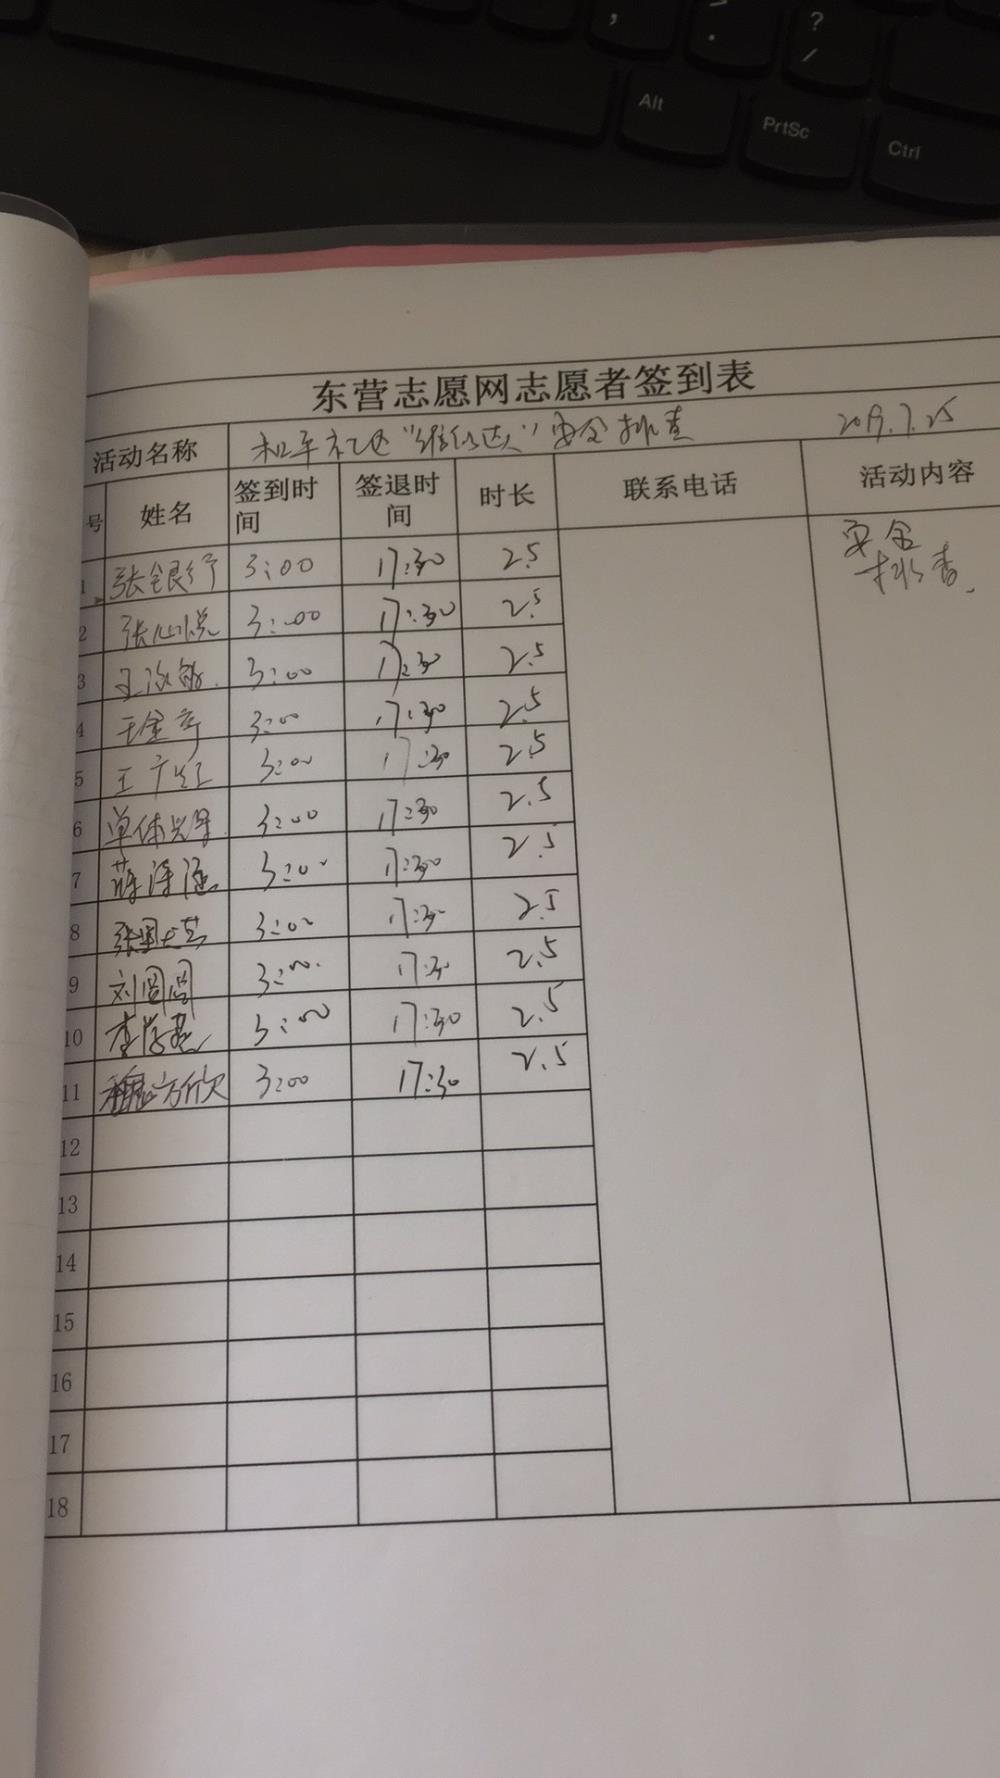 , > . ? /
Alt PrtSc Ctrl
东营志愿网志愿者签到表
活动名称 和平社区 安全排查 2019.7.25
号 姓名 签到时间 签退时间 时长 联系电话 活动内容
1 张银行 3:00 17:30 2.5 安全
排查.
2 张心悦 3:00 17:30 2.5
3 3:00 17:30 2.5
4 3:00 17:30 2.5
5 王广红 3:00 17:30 2.5
6 3:00 17:30 2.5
7 3:00 17:30 2.5
8 3:00 17:30 2.5
9 3:00 17:30 2.5
10 3:00 17:30 2.5
11 3:00 17:30 2.5
12
13
14
15
16
17
18